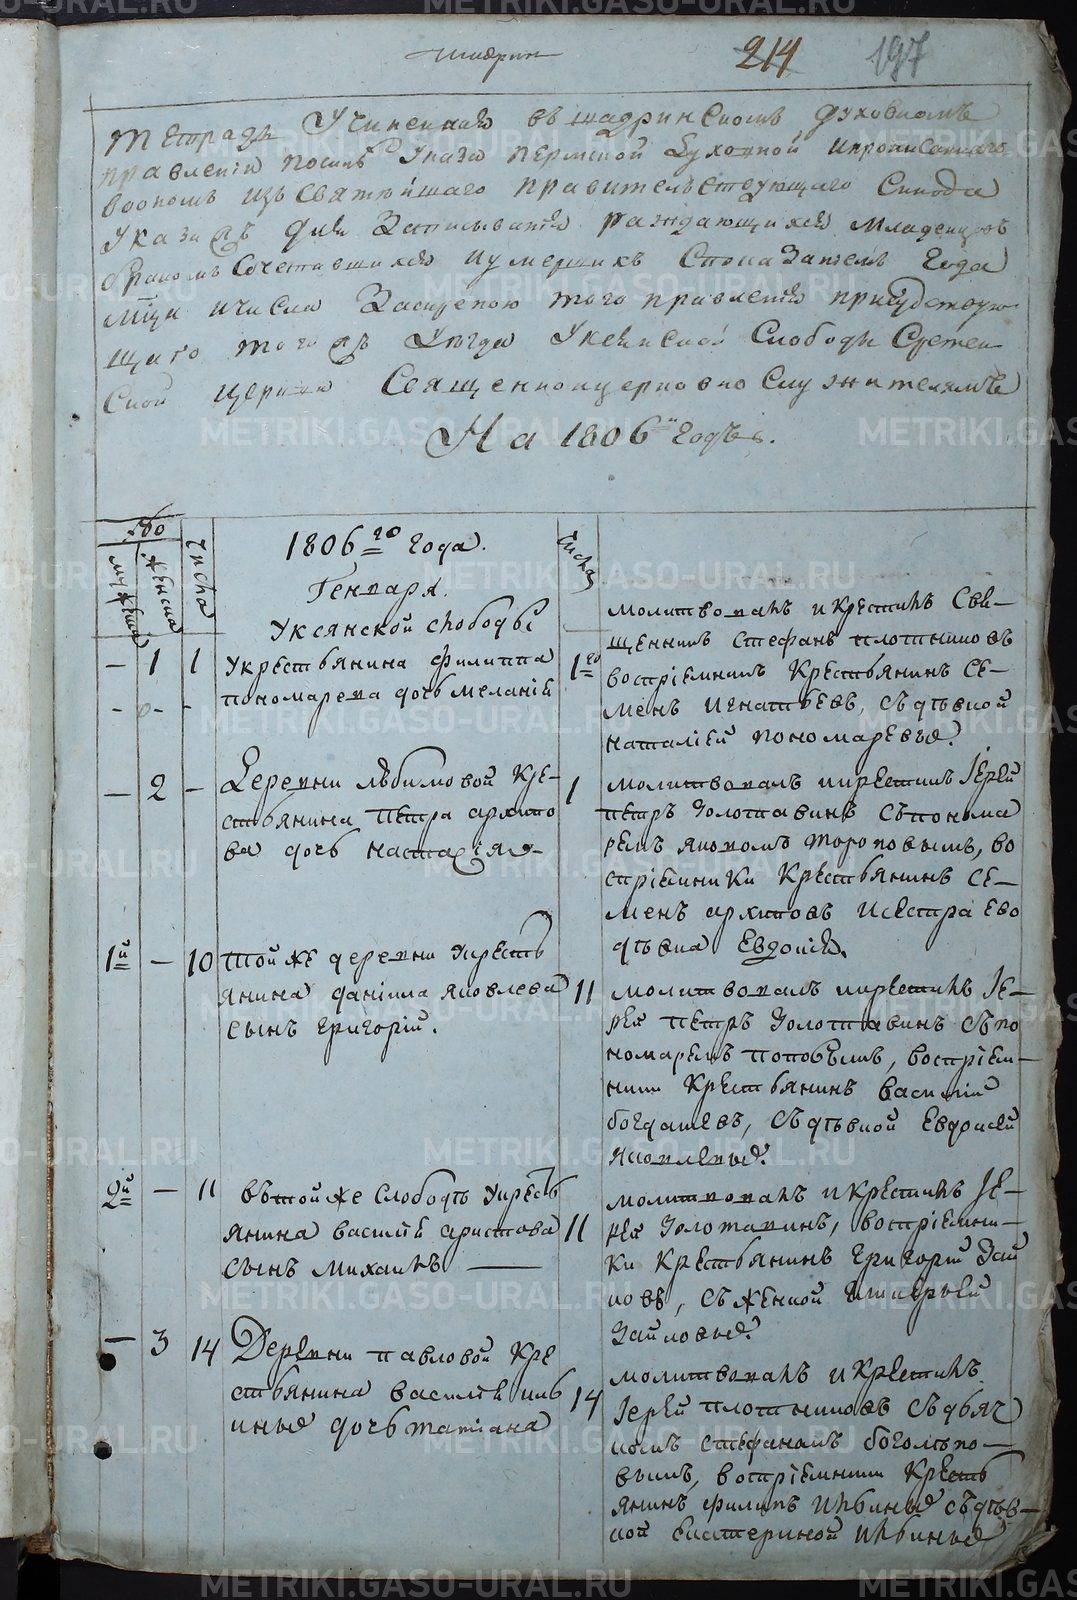 214 197
Тетрадь Учиненная въ шадринскомъ духовномъ
правленіи посилѣ Указа пермской Духовной
изъ Святѣйшаго правительствующаго Синода
Указахъ для Записыванія раждающихся младенцовъ
бракомъ Сочетавшихся иумершихъ Спокaзаніемъ Года
мцa ичисла Заскрепою того правленія присудствую
щаго тогожъ Уѣзда Уксянской Слободы Сретен
Ской церкви Священноицерковно Служителямъ
На 1806й Годъ.
число
мужеска
женска
числа
1806го Года.
Генваря.
Уксянской слободы
числа
– 1 1 Укрестьянина филиппа
пономарева дочь меланія
1го молитвовалъ икрестилъ Свя–
щенникъ Стефанъ плотниковъ
воспріемникъ Крестьянинъ Се–
менъ игнатьевъ, съдѣвкой
наталіей пономаревы.
– 2 – Деревни любимовой кре–
стьянина Петра архипо
ва дочь настасія –
1 молитвовалъ икрестилъ Іерей
петръ Золотавинъ съпонома
ремъ яковомъ тороповымъ, во
спріемники Крестьянинъ Се–
менъ архиповъ исестра Ево
дѣвка Евдокія.
1й – 10 тойже деревни укресть
янина даніила яковлева
сынъ григорій.
11 молитвовалъ икрестилъ Іе–
рей петръ Золотавинъ съпо
номаремъ поповымъ, воспріем–
ники Крестьянинъ василій
богдашевъ, съдѣвкой Евдокіей
яковлевые.
2й – 11 втойже слободѣ укресть
янина василія аристова
сынъ михаилъ
11 молитвовалъ икрестилъ Іе–
рей Золотавинъ, воспріемни–
ки Крестьянинъ григорій Зай
ковъ, съженкой
Зайковые.
– 3 14 Деревни павловой кре
стьянина василія иль
иные дочь татіана
14 молитвовалъ икрестилъ
Іерей плотниковъ съдьяч
комъ стефаномъ боголѣпо–
вымъ, воспріемники Кресть
янинъ филипъ Ильиные съдѣв–
кой Екатериной Ильиные